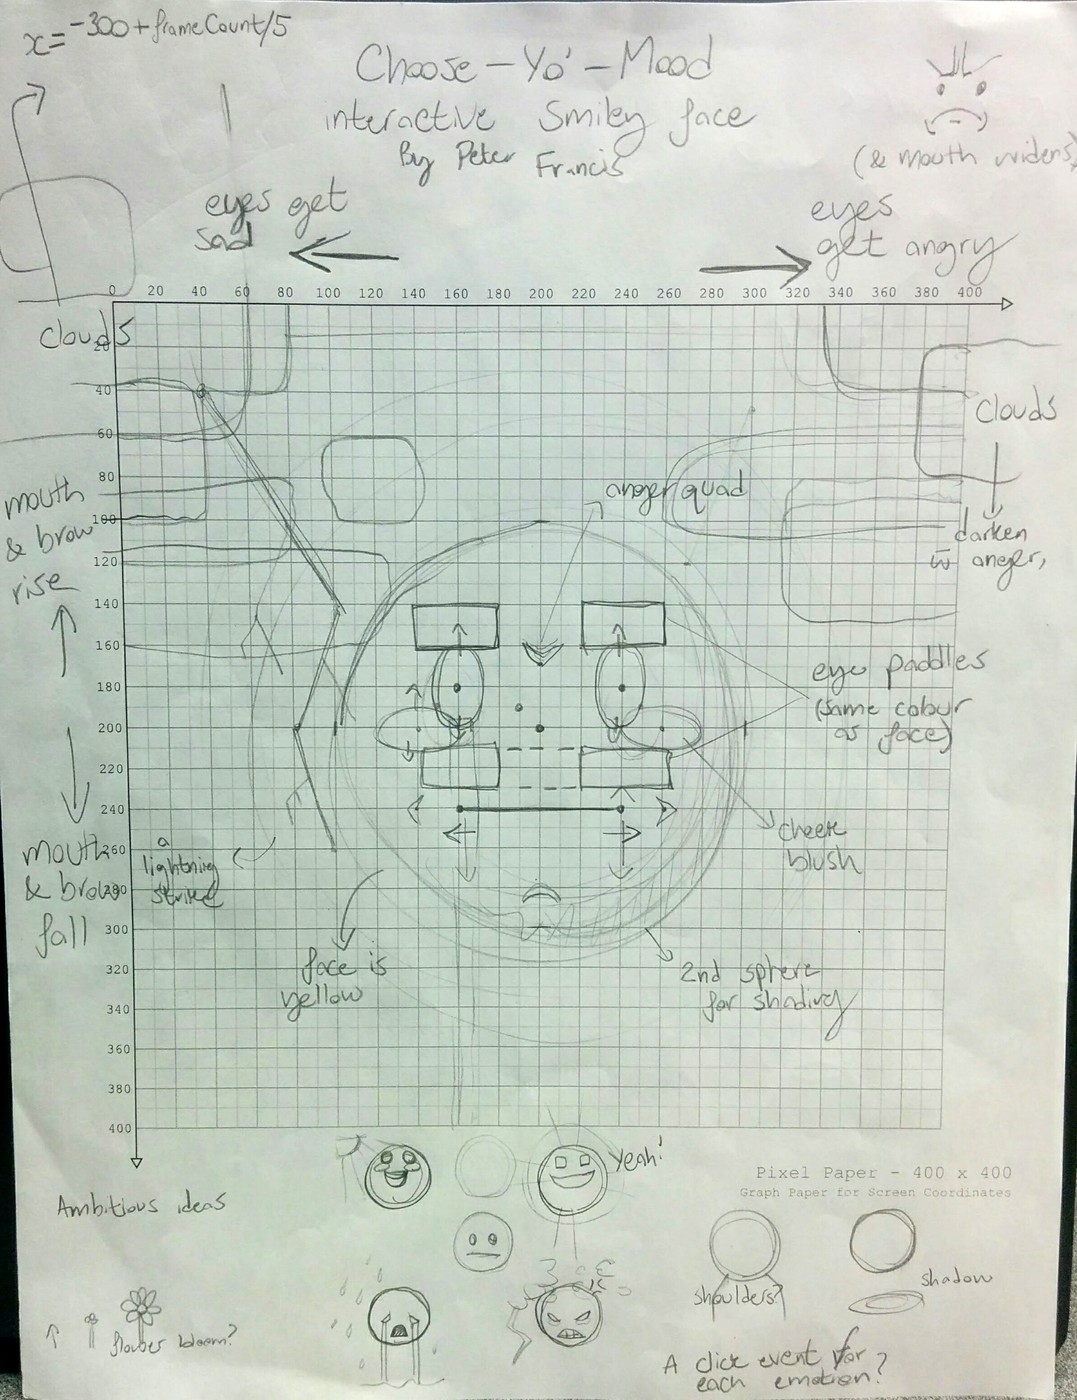 x= -300 + frameCount/5
Choose-Yo'-Mood
interactive Smiley face
By Peter Francis
(& mouth widens)
eyes get
sad
eyes
get angry
0 20 40 60 80 100 120 140 160 180 200 220 240 260 280 300 320 340 360 380 400
clouds
20
40
60
80
100
120
140
160
180
200
220
240
260
280
300
320
340
360
380
400
clouds
darken
w̄ anger,
anger quad
mouth
& brow
rise
eye paddles
(same colour
as face)
mouth
& brow
fall
a
lightning
strike
cheek
blush
face is
yellow
2nd sphere
for shading
Yeah!
Pixel Paper - 400 x 400
Graph Paper for Screen Coordinates
Ambitious ideas
shoulders?
shadow
flower bloom?
A click event for
each emotion?